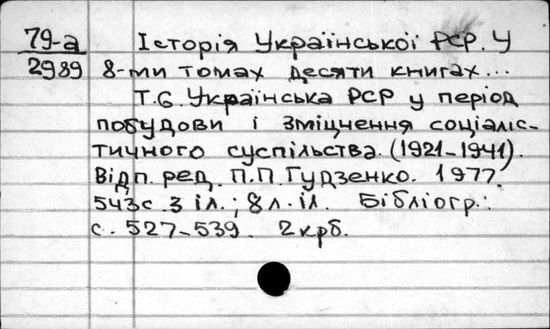 79-а Історія Української РСР. У
2989 8-ми томах десяти книгах...
Т.6. Українська РСР у період
побудови і зміцнення соціаліс-
тичного суспільства. (1921-1941).
Відп. ред. П.П. Гудзенко. 1977.
543с. з іл.; 8 л. іл. Бібліогр.:
с. 527-539. 2 крб.